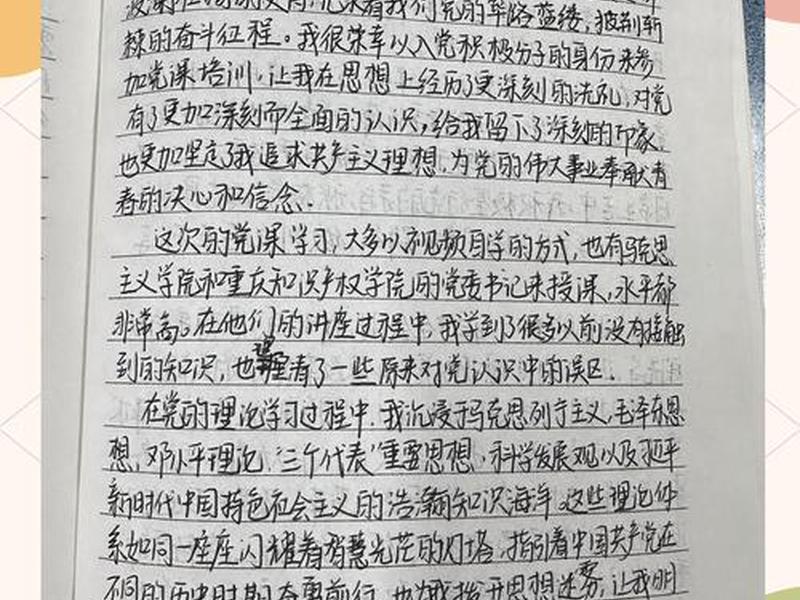 我们党的筚路蓝缕,披荆斩
棘的奋斗征程。我很荣幸以入党积极分子的身份来参
加党课培训,让我在思想上经历了更深刻的洗礼,对党
有了更加深刻而全面的认识,给我留下了深刻的印象,
也更加坚定了我追求共产主义理想,为党的伟大事业奉献青
春的决心和信念.
这次的党课学习,大多以视频自学的方式,也有马克思
主义学院和重庆知识产权学院的党委书记来授课,水平都
非常高。在他们的讲座过程中,我学到了很多以前没有接触
到的知识,也理清了一些原来对党认识中的误区.
在党的理论学习过程中,我沉浸于马克思列宁主义,毛泽东思
想,邓小平理论,“三个代表”重要思想,科学发展观以及习近平
新时代中国特色社会主义的浩瀚知识海洋。这些理论体
系如同一座座闪耀着智慧光芒的灯塔,指引着中国共产党在
不同的历史时期奋勇前行,也为我拨开思想迷雾,让我明